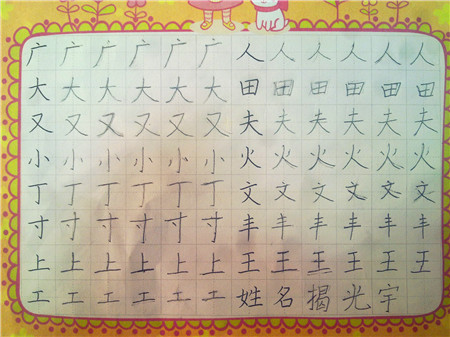 广广广广广广人人人人人人
大大大大大大田田田田田田
又又又又又又夫夫夫夫夫夫
小小小小小小火火火火火火
丁丁丁丁丁丁文文文文文文
寸寸寸寸寸寸丰丰丰丰丰丰
上上上上上上王王王王王王
工工工工工工姓名揭光宇